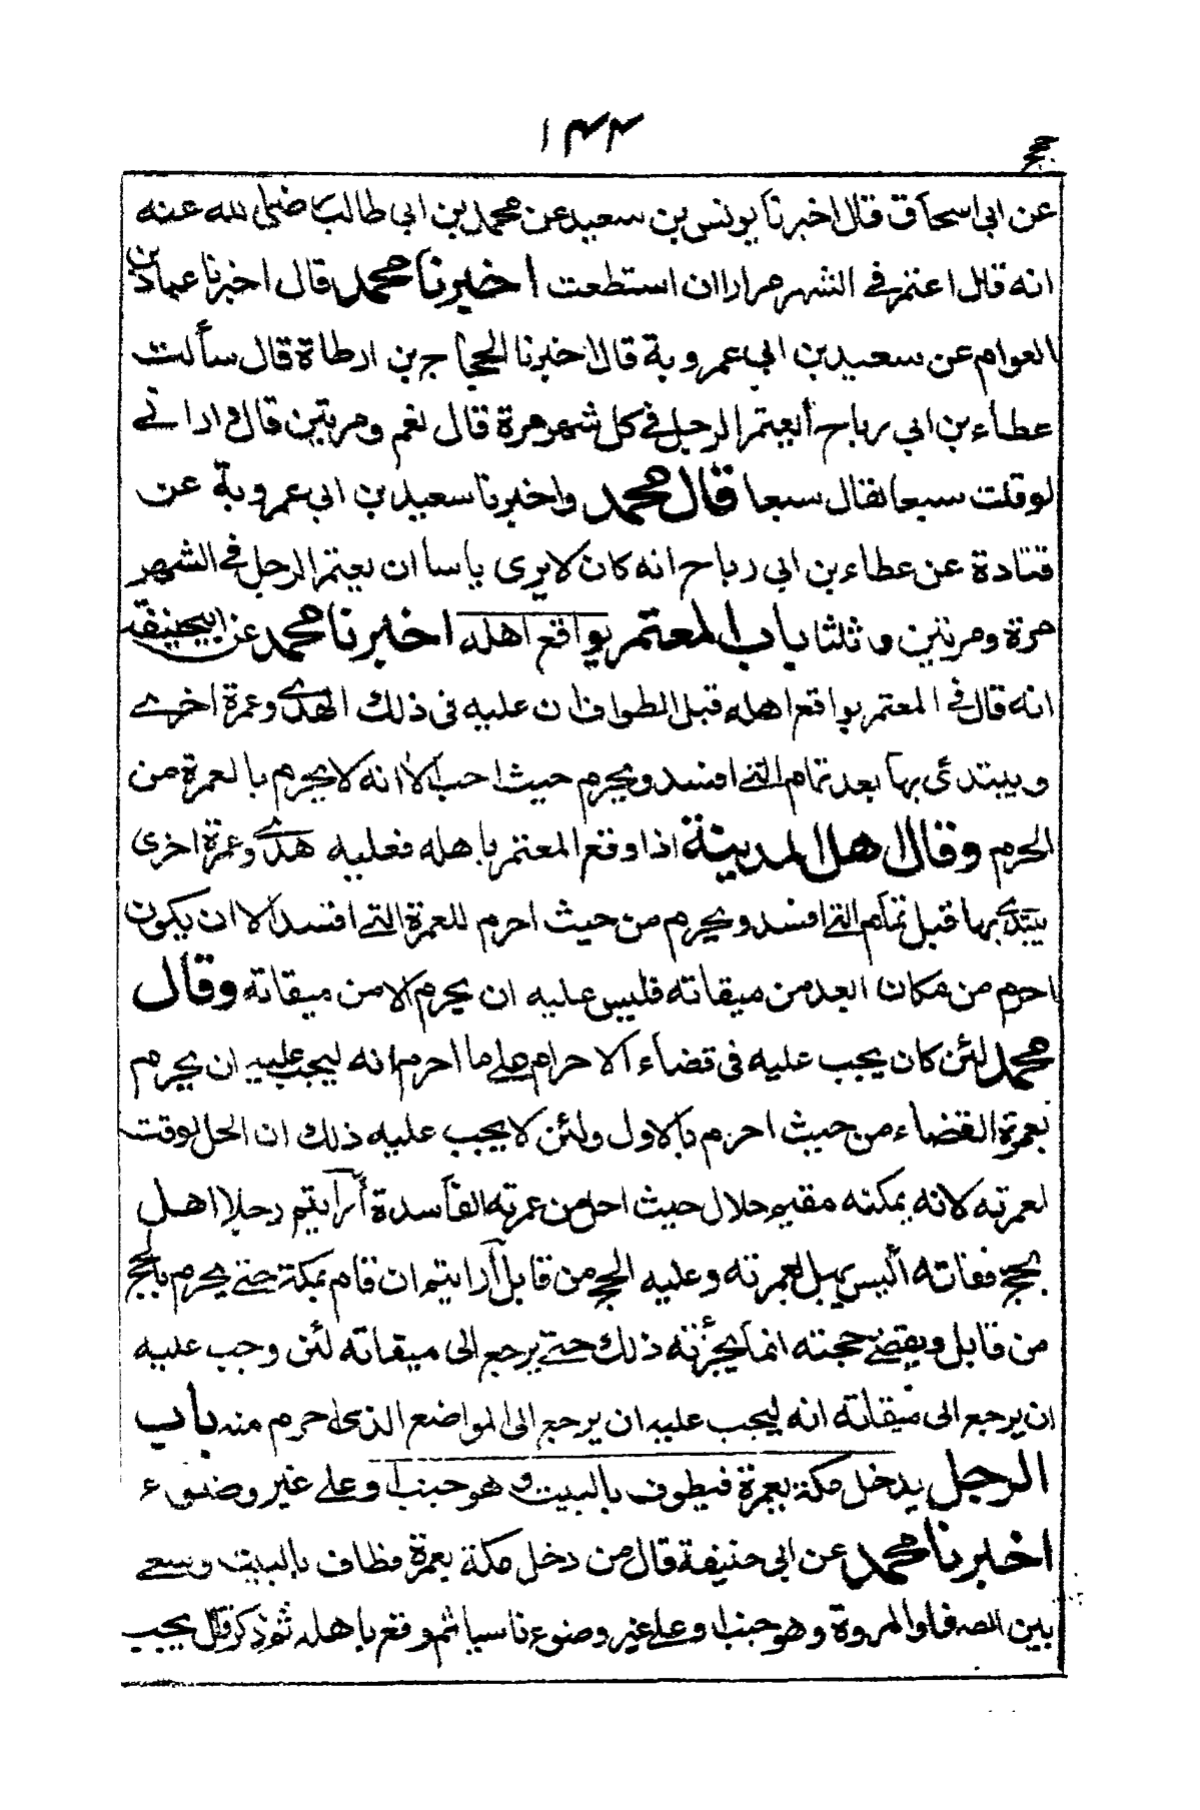 ١٤٤
حج
عن ابى اسحاق قال اخبرنا يونس بن سعيد عن محمد بن ابى طالب رضى الله عنه
انه قال اعتمر فى الشهر مرارا ان استطعت اخبرنا محمد قال اخبرنا عباد بن
العوام عن سعيد بن ابى عروبة قال اخبرنا الحجاج بن ارطاة قال سألت
عطاء بن ابى رباح أيعتمر الرجل فى كل شهر مرة قال نعم ومرتين قال و ارانى
لو قلت سبعا لقال سبعا قال محمد واخبرنا سعيد بن ابى عروبة عن
قتادة عن عطاء بن ابى رباح انه كان لا يرى باسا ان يعتمر الرجل فى الشهر
مرة ومرتين و ثلثا باب المعتمر يواقع اهله اخبرنا محمد عن ابيحنيفة
انه قال فى المعتمر يواقع اهله قبل الطواف ان عليه فى ذلك الهدى وعمرة اخرى
ويبتدئ بها بعد تمام التى افسد ويحرم حيث احب الا انه لا يحرم بالعمرة من
الحرم وقال اهل المدينة اذا وقع المعتمر باهله فعليه هدى وعمرة اخرى
يبتدى بها قبل تمام التى افسد ويحرم من حيث احرم للعمرة التى افسد الا ان يكون
احرم من مكان ابعد من ميقاته فليس عليه ان يحرم الا من ميقاته وقال
محمد لئن كان يجب عليه فى قضاء الاحرام على ما احرم انه ليجب عليه ان يحرم
بعمرة القضاء من حيث احرم بالاول ولئن لا يجب عليه ذلك ان الحل لوقت
لعمرته لانه يمكنه مقيم حلال حيث احل من عمرته الفاسدة أرأيتم رجلا اهل
بحج ففاته أليس يهل لعمرته وعليه الحج من قابل أرايتم ان قام بمكة حتى يحرم بالحج
من قابل ويقضى حجته انما يجزئه ذلك حتى يرجع الى ميقاته لئن وجب عليه
ان يرجع الى ميقاته انه ليجب عليه ان يرجع الى المواضع الذى احرم منه باب
الرجل يدخل مكة بعمرة فيطوف بالبيت و هو جنبا وعلى غير وضوء
اخبرنا محمد عن ابى حنيفة قال من دخل مكة بعمرة فطاف بالبيت وسعى
بين الصفا والمروة وهو جنبا وعلى غير وضوء ناسيا ثم وقع باهله ثم ذكر قال يجب